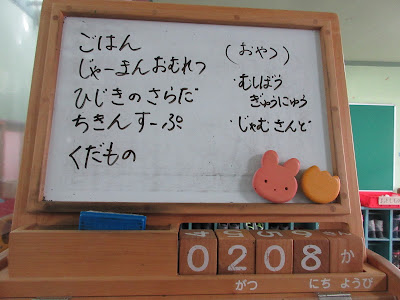 ごはん
じゃーまんおむれつ
ひじきのさらだ
ちきんすーぷ
くだもの
(おやつ)
・むしぱう
ぎゅうにゅう
・じゃむさんど
0208か
がつ にち ようび